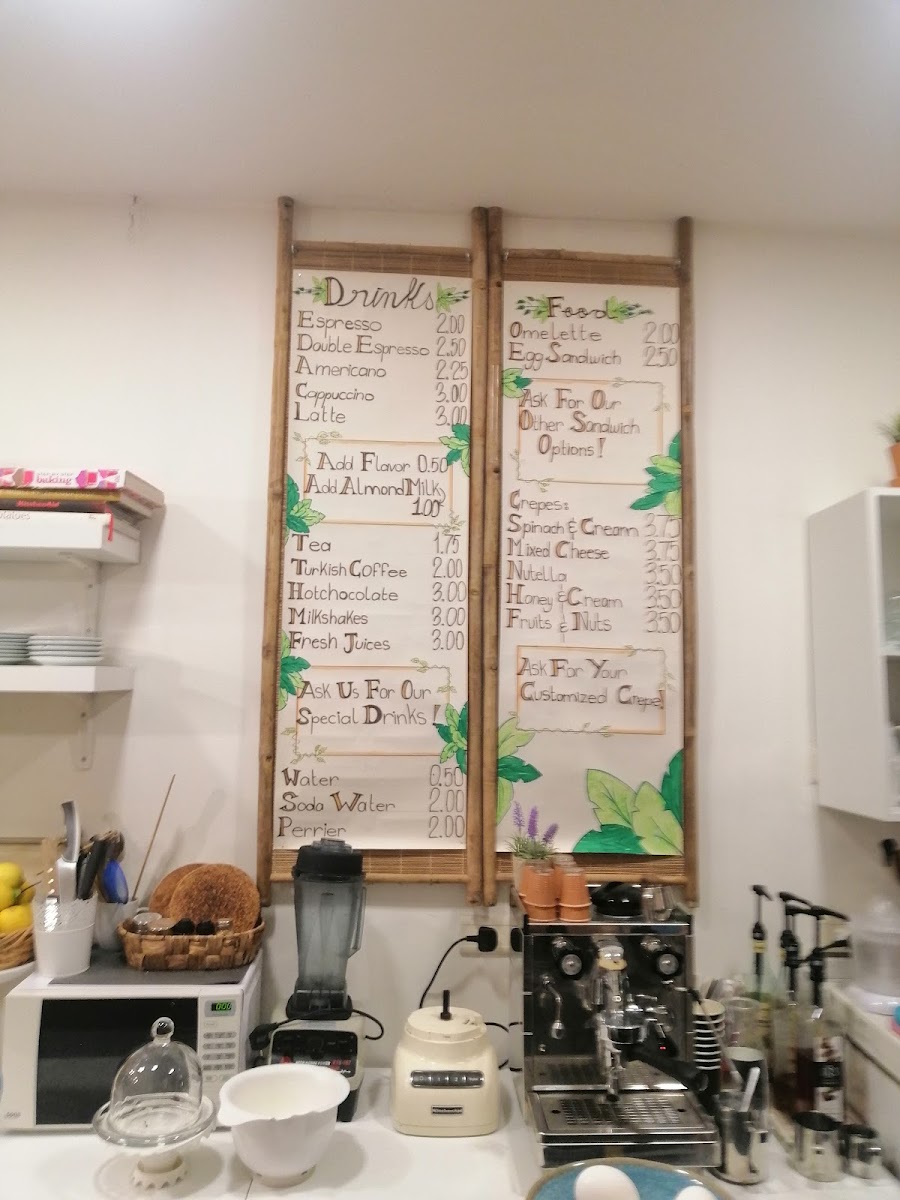 Drinks
Espresso 2.00
Double Espresso 2.50
Americano 2.25
Cappuccino 3.00
Latte 3.00
Add Flavor 0.50
Add Almond Milk
1.00
Tea 1.75
Turkish Coffee 2.00
Hotchocolate 3.00
Milkshakes 3.00
Fresh Juices 3.00
Ask Us For Our
Special Drinks!
Water 0.50
Soda Water 2.00
Perrier 2.00
Food
Omelette 2.00
Egg Sandwich 2.50
Ask For Our
Other Sandwich
Options!
Crepes:
Spinach & Cream 3.75
Mixed Cheese 3.75
Nutella 3.50
Honey & Cream 3.50
Fruits & Nuts 3.50
Ask For Your
Customized Crepe!
baking
KitchenAid
000
KitchenAid